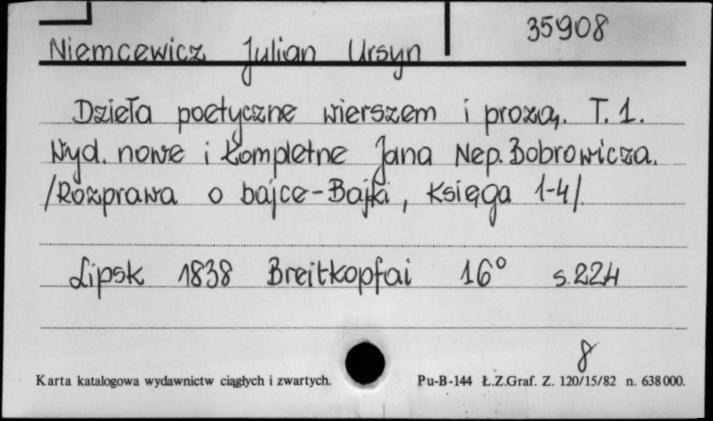 35908
Niemcewicz Julian Ursyn
Dzieła poetyczne wierszem i prozą. T. 1.
Wyd. nowe i kompletne Jana Nep. Bobrowicza.
/Rozprawa o bajce-Bajki, Księga 1-4/.
Lipsk 1838 Breitkopfai 16° s.224
8
Karta katalogowa wydawnictw ciągłych i zwartych. Pu-B-144 Ł.Z.Graf. Z. 120/15/82 n. 638000.